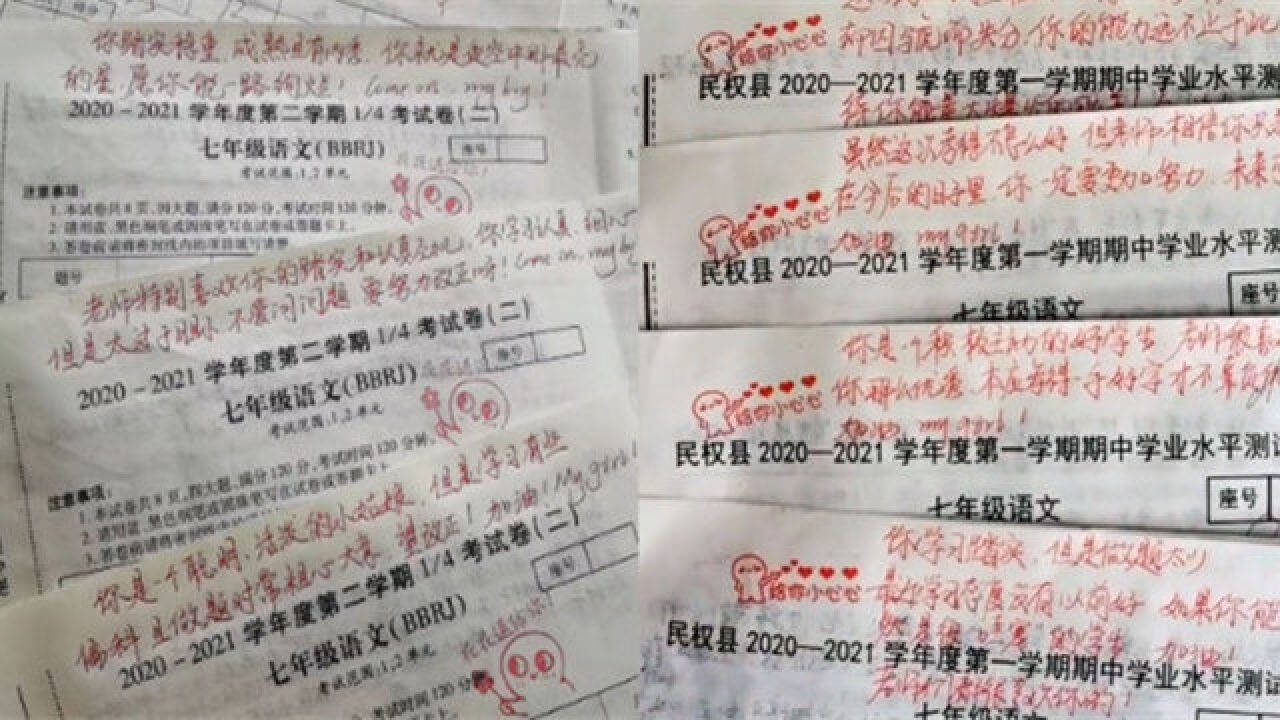 你踏实稳重,成熟且有内秀,你就是夜空中那最亮
的星,愿你能一路绚烂! Come on, my boy!
2020-2021 学年度第二学期1/4考试卷(二)
七年级语文(BBRJ)
座号
考试范围:1、2 单元
花花送给你!
注意事项:
1. 本试卷共8页,四大题,满分120分,考试时间120分钟。
2. 请用蓝、黑色钢笔或圆珠笔写在试卷或答题卡上。
3. 答卷前请将密封线内的项目填写清楚
题号
老师特别喜欢你的踏实和认真
你学习认真,细心
但是太过于胆小,不爱问问题,要努力改正呀! Come on, my boy
2020-2021 学年度第二学期1/4考试卷(二)
七年级语文(BBRJ)
座号
考试范围:1、2 单元
注意事项:
1. 本试卷共8页,四大题,满分120分,考试时间120分钟。
2. 请用蓝、黑色钢笔或圆珠笔写在试卷或答题卡上
3. 答卷前请将密封
你是一个聪明、活泼的小姑娘,但是学习有些
偏科且做题时常粗心大意,望改正!加油! My girl!
2020-2021 学年度第二学期1/4考试卷(二)
七年级语文(BBRJ)
座号
考试范围:1、2 单元
花花送给你!
考试时间120分钟
给你小心心
失分,你的能力远不止于此
民权县 2020—2021 学年度第一学期期中学业水平测
虽然这次考得不怎么好,但老师相信你
给你小心心
在今后的日子里,你一定要更加努力,未来
加油, my girl!
民权县 2020—2021 学年度第一学期期中学业水平测
七年级语文
座号
你是一个积极主动的好学生,老师很喜
给你小心心
你那么优秀,本应写得一手好字才不辜负
加油, my girl!
民权县 2020—2021 学年度第一学期期中学业水平测试
七年级语文
座号
你学习踏实,但是做题太少
给你小心心
最近学习态度没有以前好,如果你能
的学生,加油!
民权县 2020—2021 学年度第一学期期中学业水平测试
老师们都很喜欢你的!
七年级语文